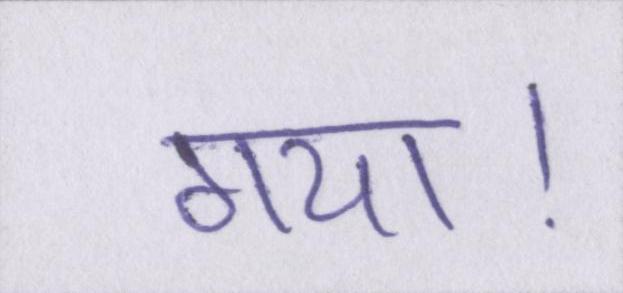 गया!